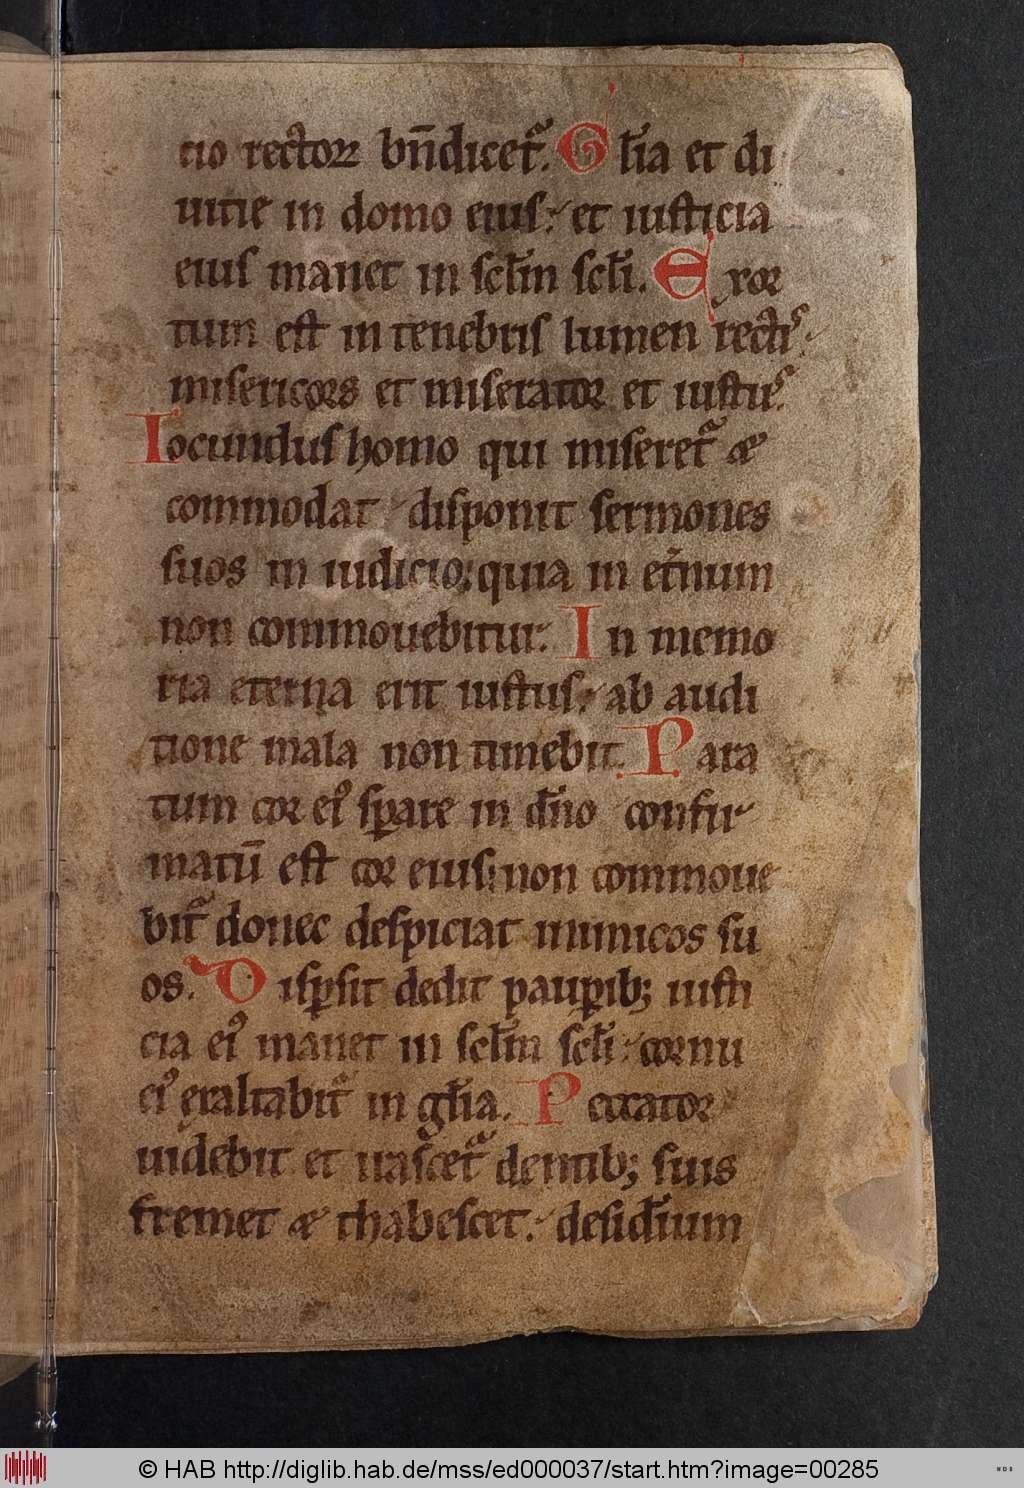 cio rectoꝝ bn̄dicetᷣ. Gl̄ia et di
uitie in domo eius : et iusticia
eius manet in scl̄m scl̄i. Exor
tum est in tenebris lumen rectis :
misericors et miserator et iustus.
Iocundus homo qui miseretᷣ &
commodat disponit sermones
suos in iudicio ; quia in et̄num
non commouebitur. In memo
ria eterna erit iustus : ab audi
tione mala non timebit. Para
tum cor eiꝰ sꝑare in dn̄o confir
matū est cor eius ; non commoue
bitᷣ donec despiciat inimicos su
os. Disꝑsit dedit pauꝑib; iusti
cia eiꝰ manet in scl̄m scl̄i : cornu
eiꝰ exaltabitᷣ in gl̄ia. Peccator
uidebit et irascetᷣ dentib; suis
fremet & thabescet : desid̄ium
© HAB http://diglib.hab.de/mss/ed000037/start.htm?image=00285